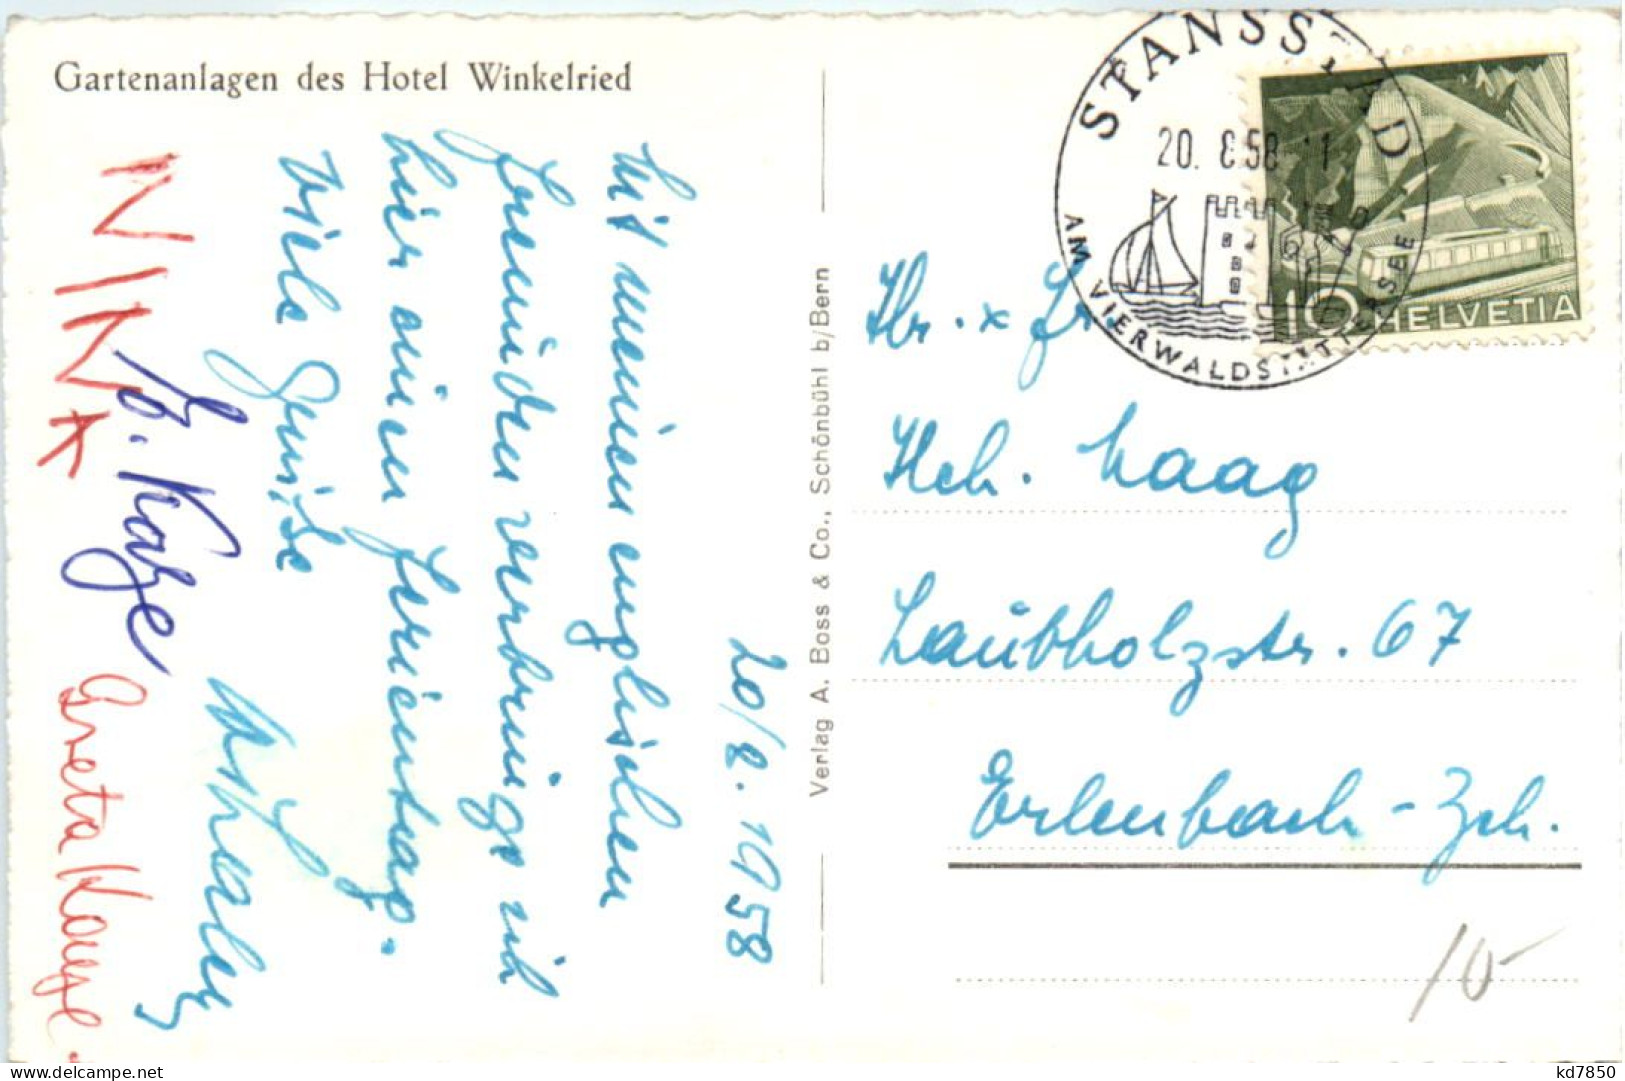 Gartenanlagen des Hotel Winkelried
20/8. 1958
Mit meinen englischen
Freunden verbringe ich
hier einen Ferientag.
Viele Grüsse
NINA
Greta Kaye.
Verlag A. Boss & Co., Schönbühl b/Bern
STANSSTAD
20. 8.58
AM VIERWALDSTÄTTERSEE
10 HELVETIA
Hr. x Fr.
Hch. Haag
Laubholzstr. 67
Erlenbach - Zch.
10-
kd7850